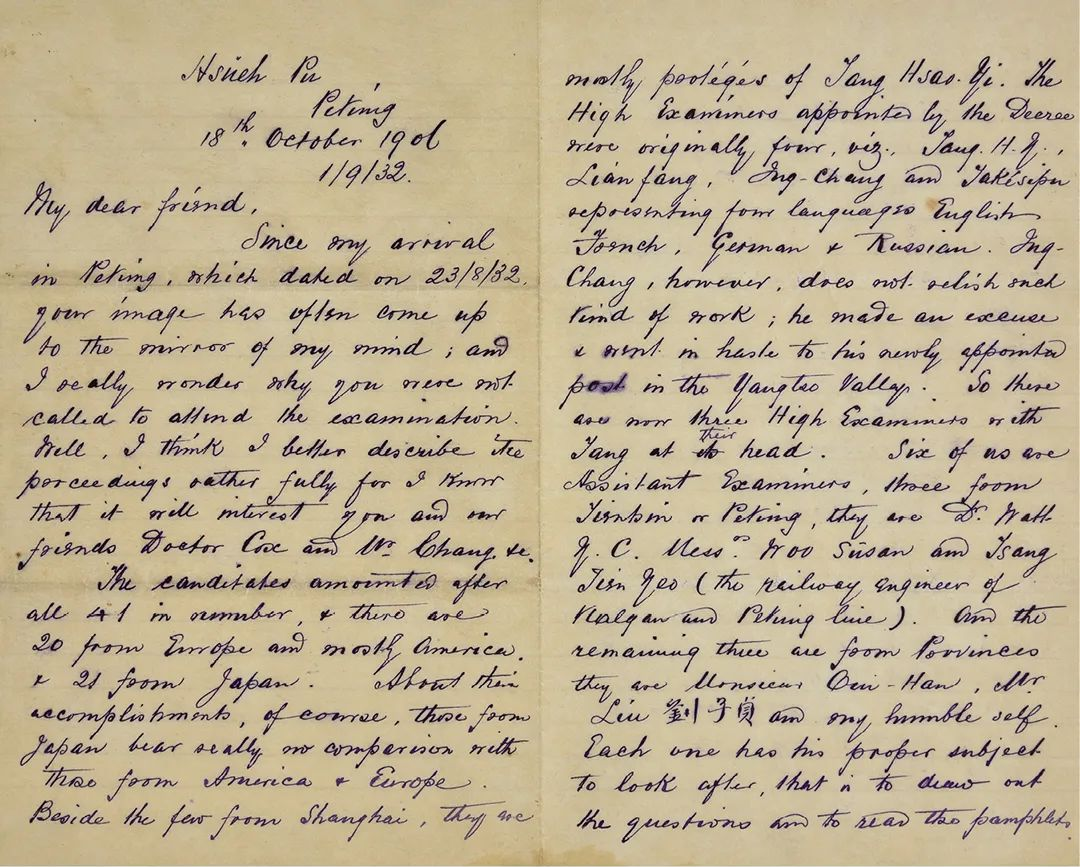 Hsüeh Pu
Peking
18th October 1906
1/9/32.
My dear friend,
Since my arrival
in Peking, which dated on 23/8/32,
your image has often come up
to the mirror of my mind; and
I really wonder why you were not
called to attend the examination.
Well, I think I better describe the
porceedings rather fully for I know
that it will interest you and our
friends Doctor Cox and Mr Chang &c.
The canditates amounted after
all 41 in number, & there are
20 from Europe and mostly America,
& 21 from Japan. About their
accomplishments, of course, those from
Japan bear really no comparison with
those from America & Europe.
Beside the few from Shanghai, they are
mostly protégés of Tang Hsao-Yi. The
High Examiners appointed by the Decree
were originally four, viz., Tang. H. Y.,
Lian fang, Ing-Chang and Takésipu
representing four languages English
French, German & Russian. Ing-
Chang, however, does not relish such
kind of work; he made an excuse
& went in haste to his newly appointed
post in the Yangtse Valley. So there
are now three High Examiners with
Tang at their head. Six of us are
Assistant Examiners, three from
Tientsin or Peking, they are Dr. Watt
Y. C. Messrs Woo Susan and Tsang
Tien Yeo (the railway engineer of
Kalgan and Peking line). And the
remaining three are from Provinces
they are Monsieur Ouin-Han, Mr
Liu 劉子貞 and my humble self.
Each one has his proper subject
to look after, that is to draw out
the questions and to read the pamphlets.